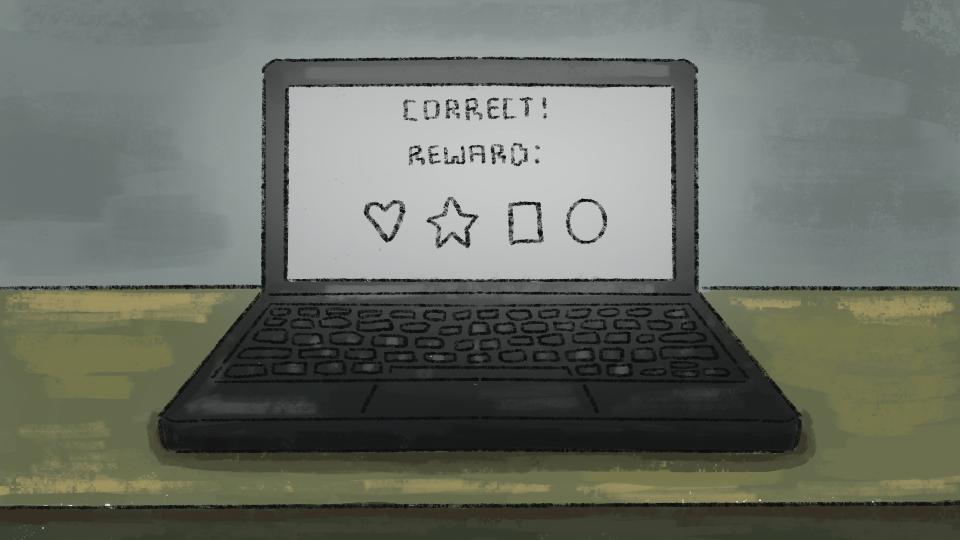 CORRECT!
REWARD: